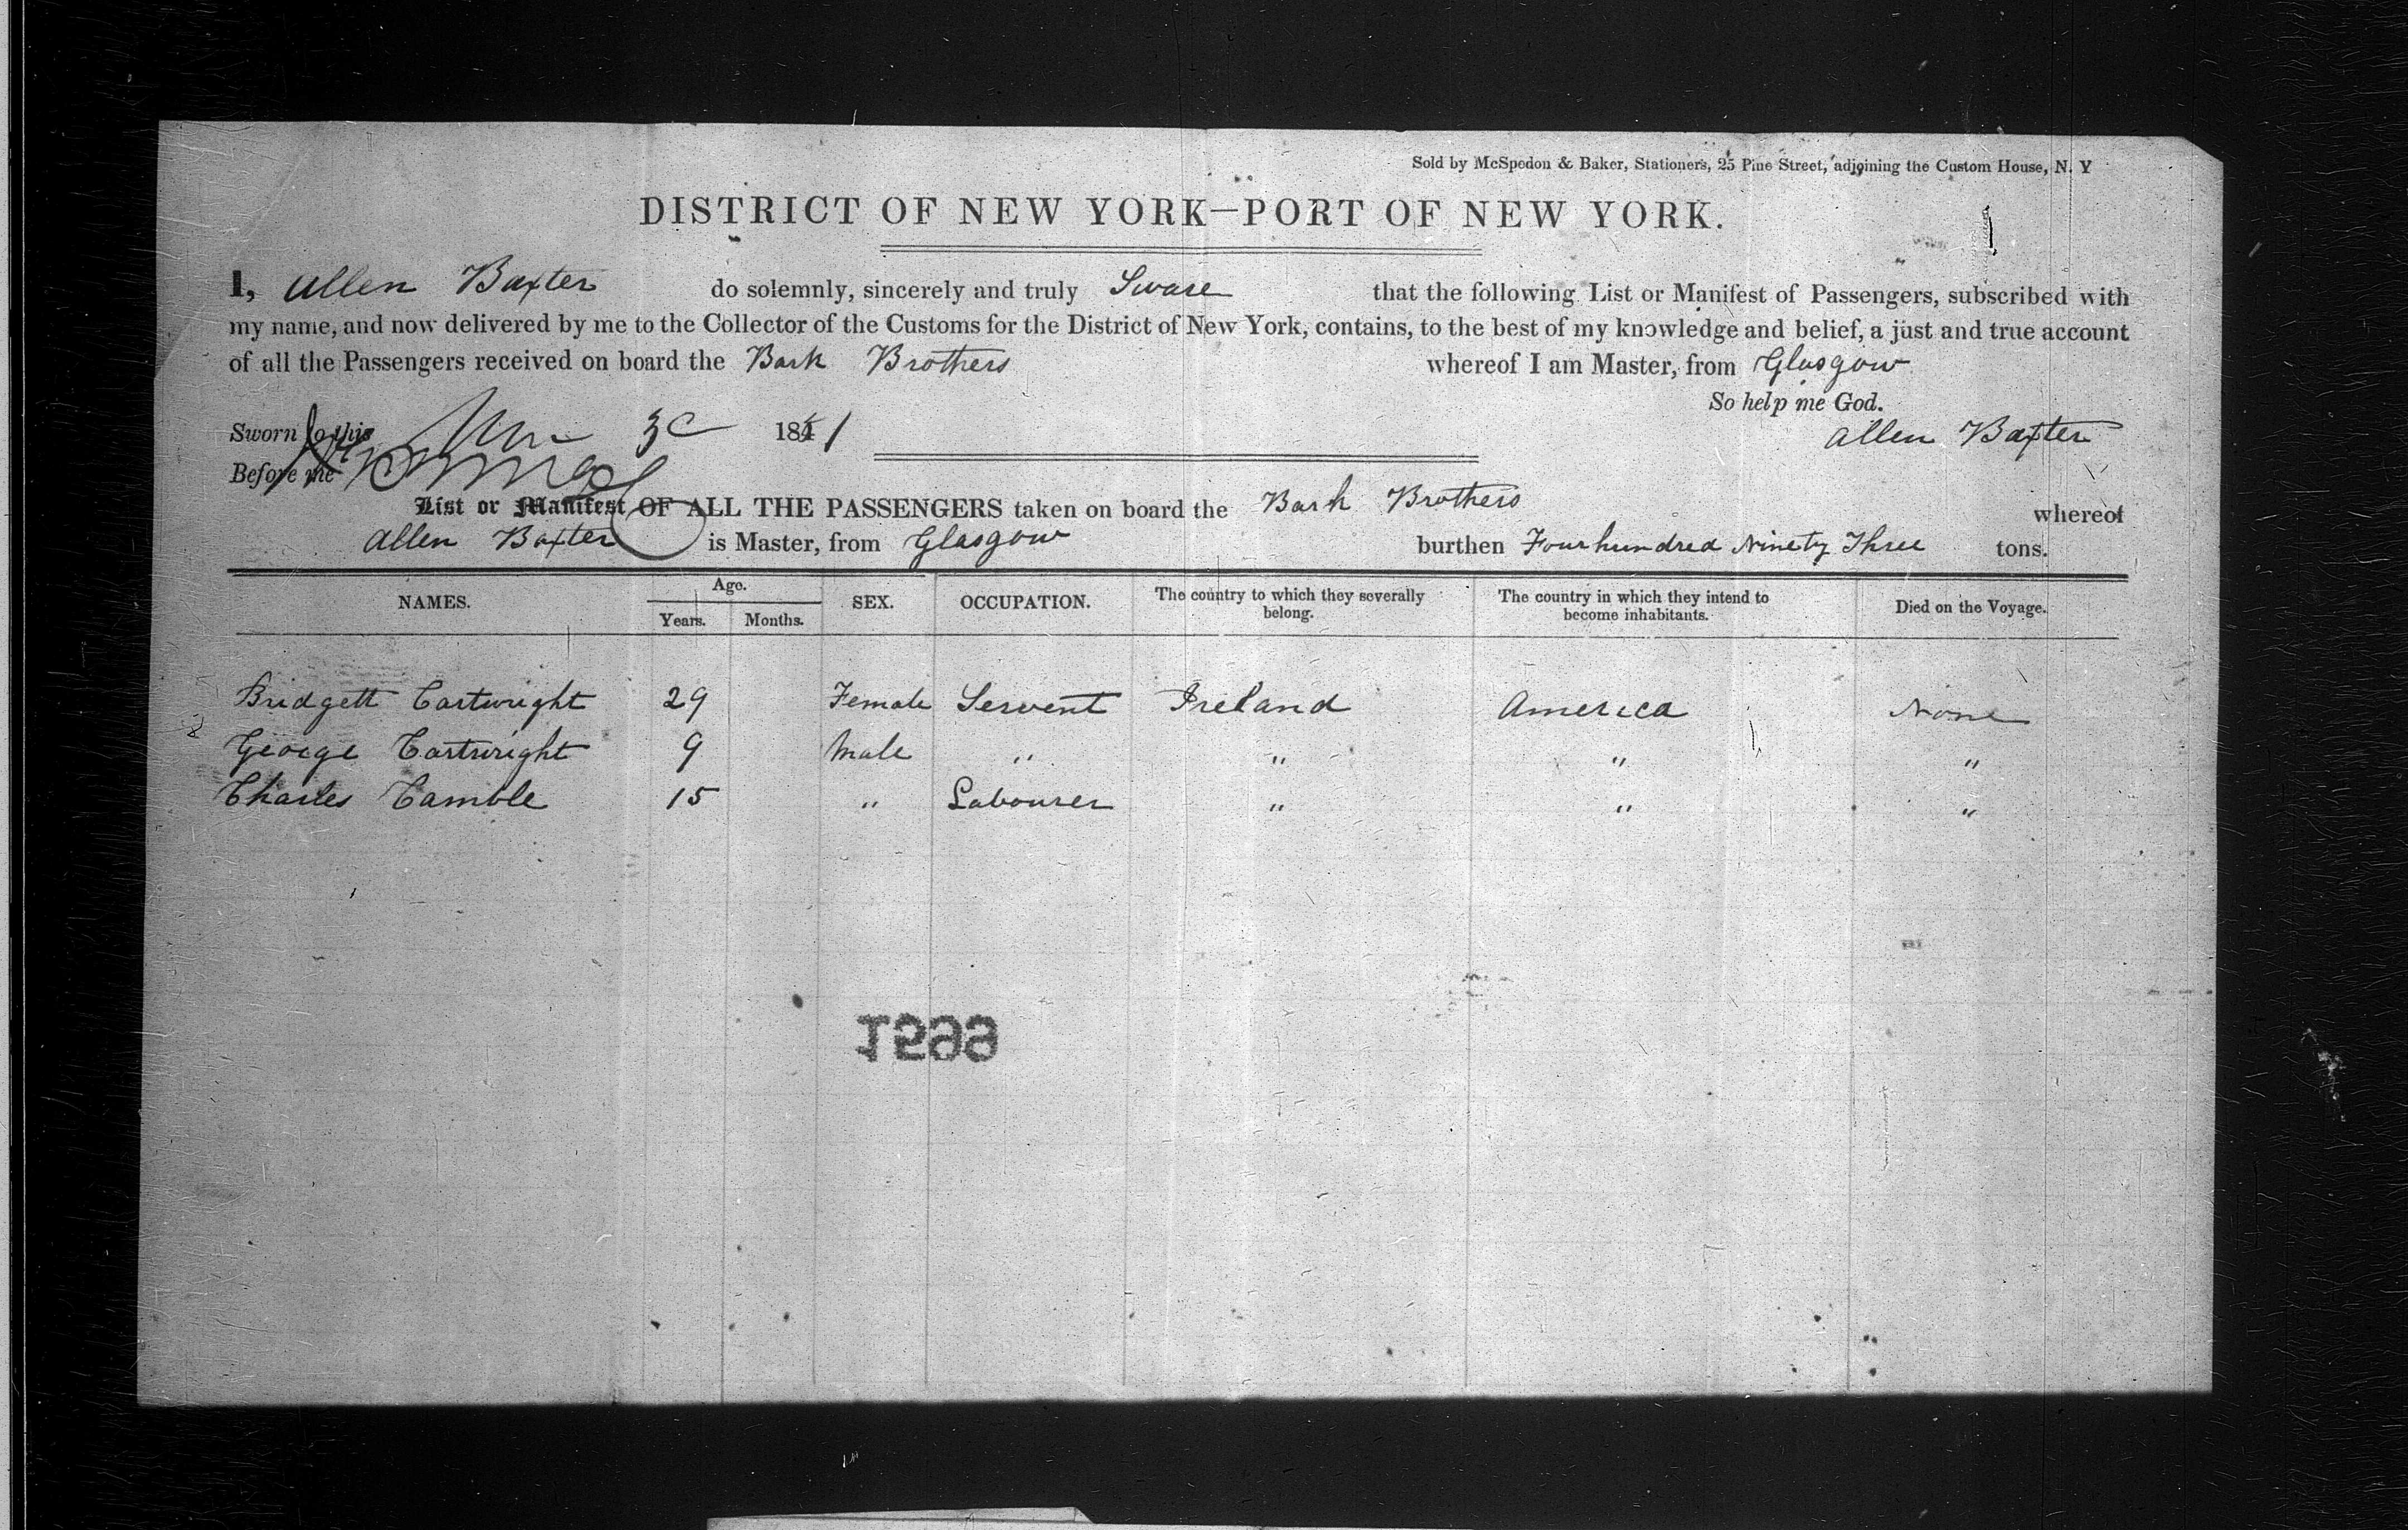 Sold by McSpedon & Baker, Stationers, 25 Pine Street, adjoining the Custom House, N. Y
DISTRICT OF NEW YORK—PORT OF NEW YORK.
I, Allen Baxter do solemnly, sincerely and truly Sware that the following List or Manifest of Passengers, subscribed with
my name, and now delivered by me to the Collector of the Customs for the District of New York, contains, to the best of my knowledge and belief, a just and true account
of all the Passengers received on board the Bark Brothers whereof I am Master, from Glasgow
So help me God.
Sworn to this 30 1851
Allen Baxter
Before me
List or Manifest OF ALL THE PASSENGERS taken on board the Bark Brothers whereof
Allen Baxter is Master, from Glasgow burthen Four hundred Ninety Three tons.
NAMES. Age. Years. Months. SEX. OCCUPATION. The country to which they severally belong. The country in which they intend to become inhabitants. Died on the Voyage.
Bridgett Cartwright 29 Female Servent Ireland America None
George Cartwright 9 Male " " " "
Charles Camble 15 " Labourer " " "
1599